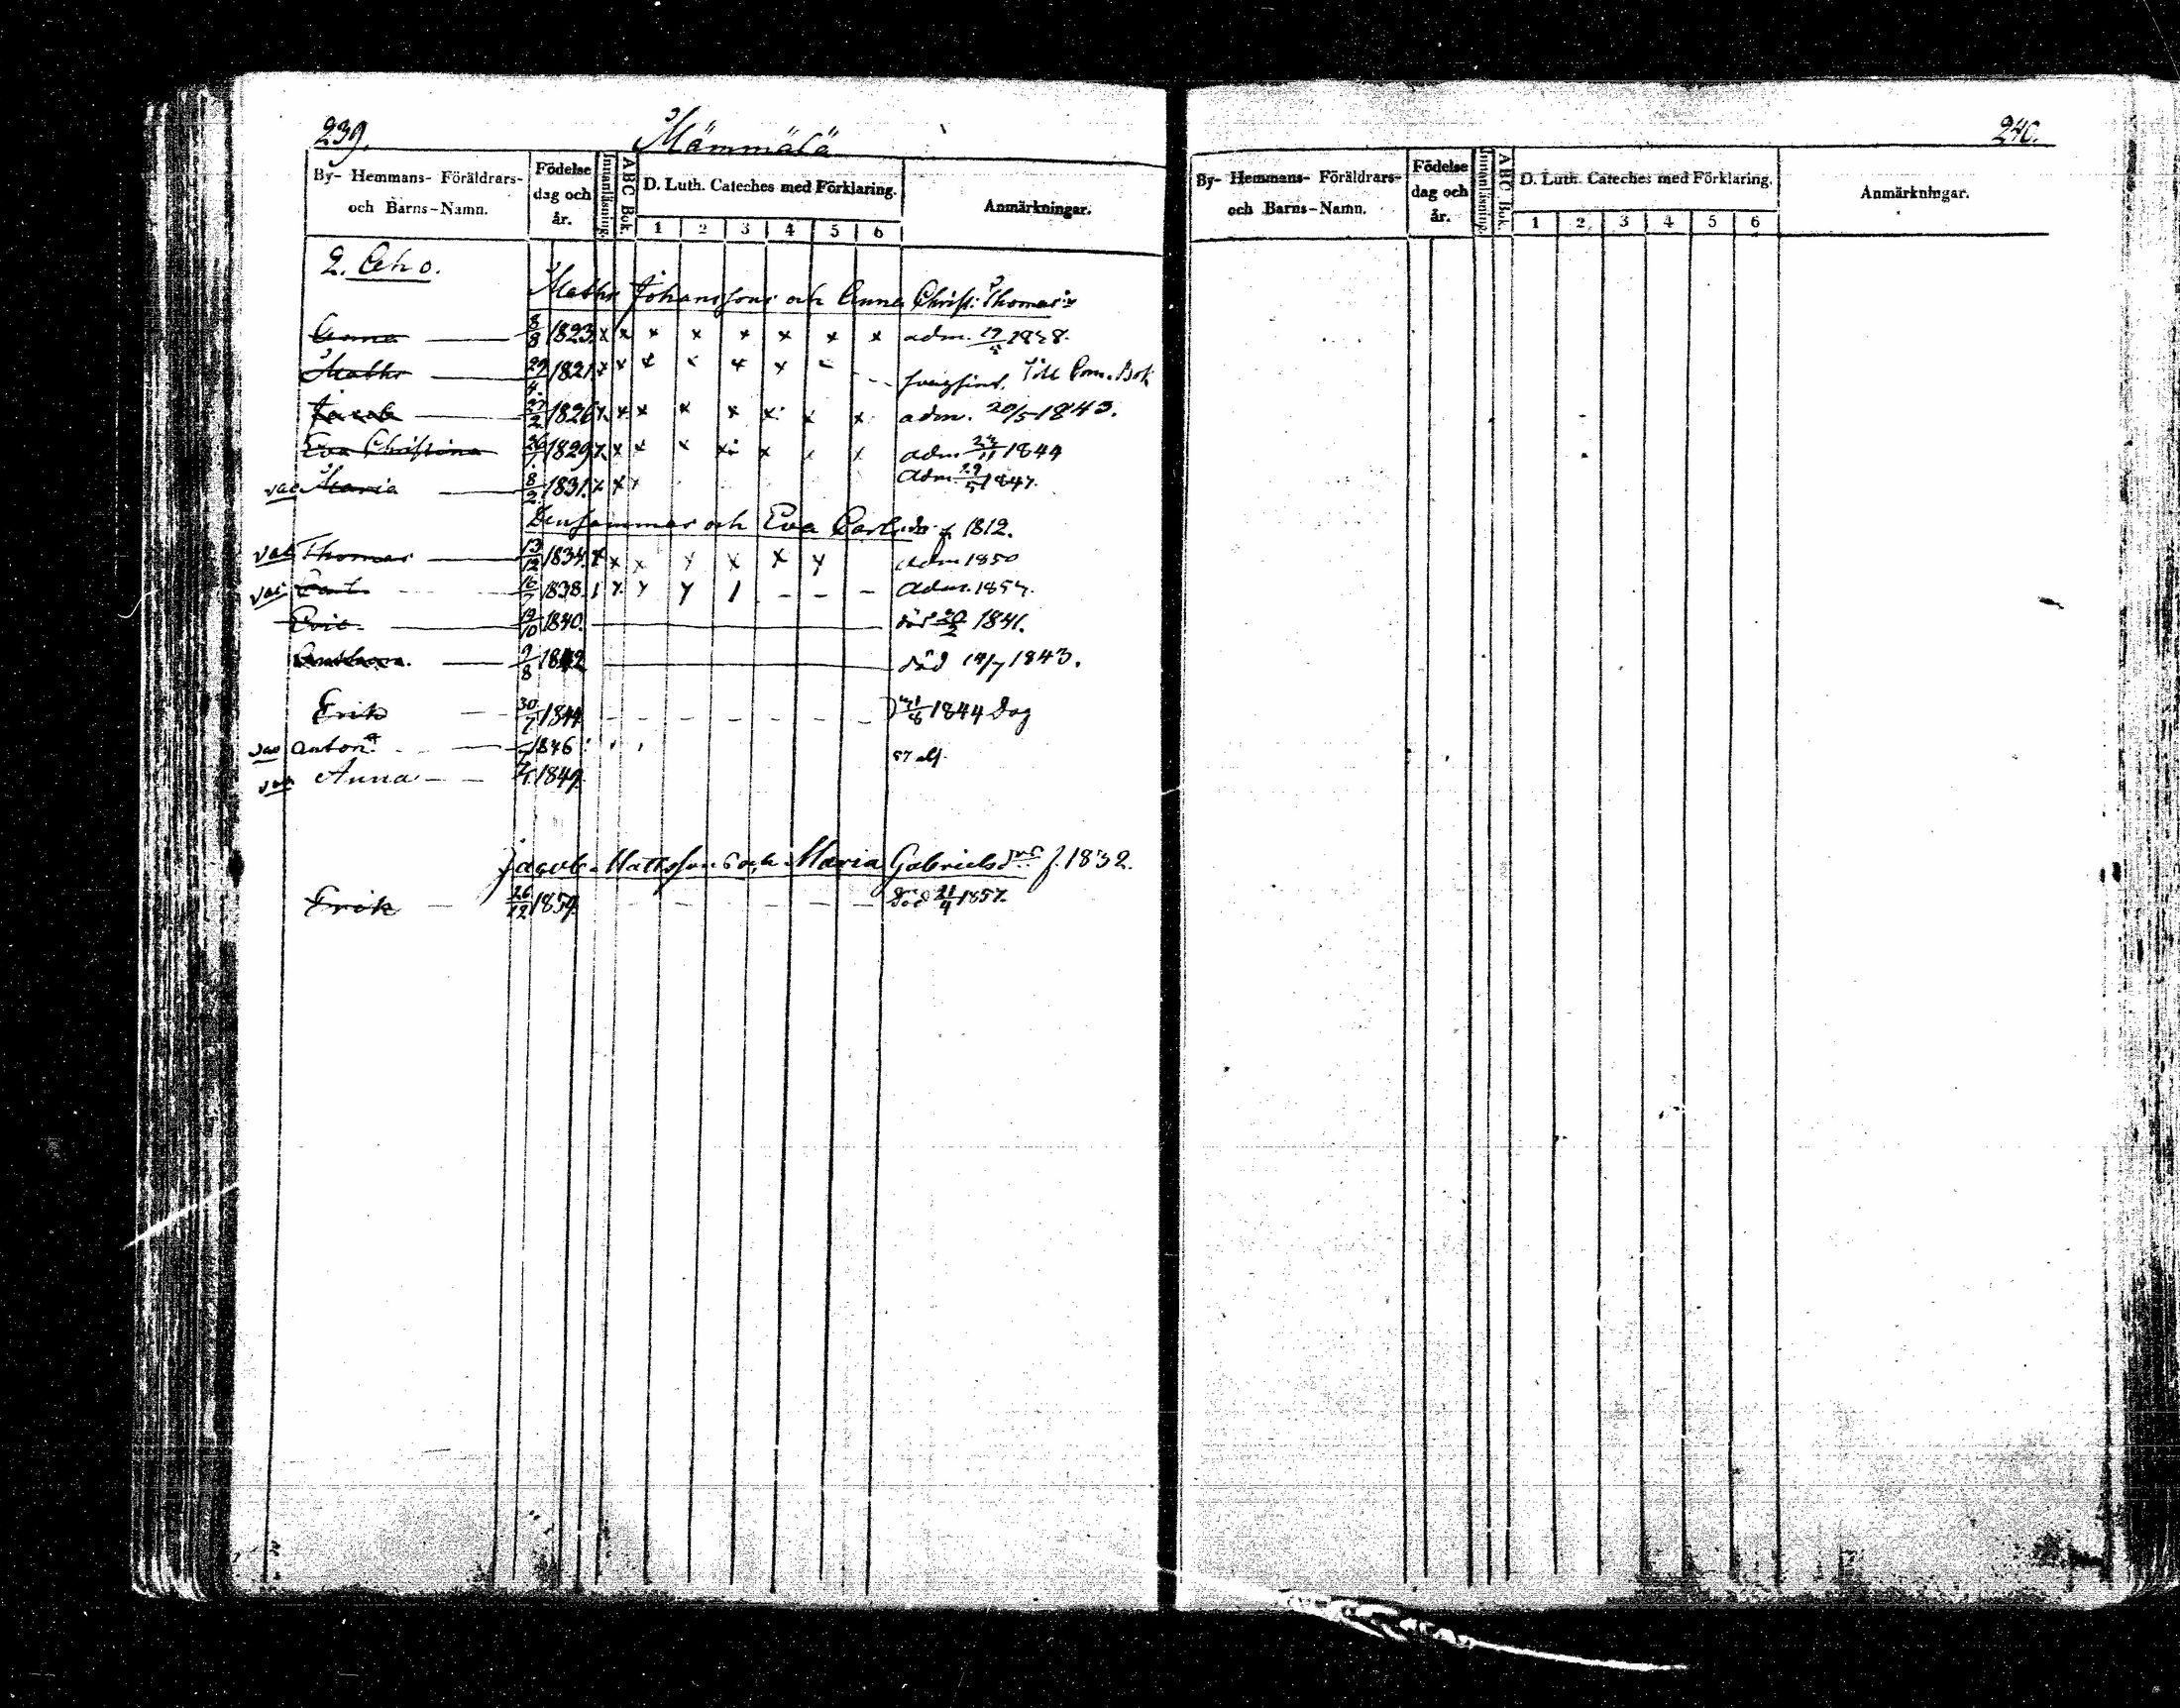 239.
Mämmälä
By- Hemmans- Föräldrars- och Barns-Namn.
Födelse dag och år.
Innanläsning.
ABC Bok.
D. Luth. Cateches med Förklaring.
1 2 3 4 5 6
Anmärkningar.
2. Aho.
Matts Johanssons och Anna Christ: Thomasd:r
Anna 8/8 1823. x x x x x x x x adm. 1838.
Matts 1821. Till Com. Bok
Jacob 1826 x x x x x x x x adm. 20/5 1843.
Eva Christina 1829 adm 1844
vac Maria 8/2 1831. x x x Adm 29/5 1847.
Densammas och Eva Carlsdr f 1812.
vac Thomas 13/12 1834. x x x y x x y adm 1850
vac Carl 16/7 1838. Adm. 1854.
Eric 19/10 1840. död 1841.
8 1842 död 1843.
Erik 30/7 1844 1844 Dog
vac Anton 1846
vac Anna 1849.
Jacob Mattssons och Maria Gabrielsdr f. 1832.
Erik 26/12 185 Död 21/4 1857.
240.
By- Hemmans- Föräldrars- och Barns-Namn.
Födelse dag och år.
Innanläsning.
ABC Bok.
D. Luth. Cateches med Förklaring.
1 2 3 4 5 6
Anmärkningar.